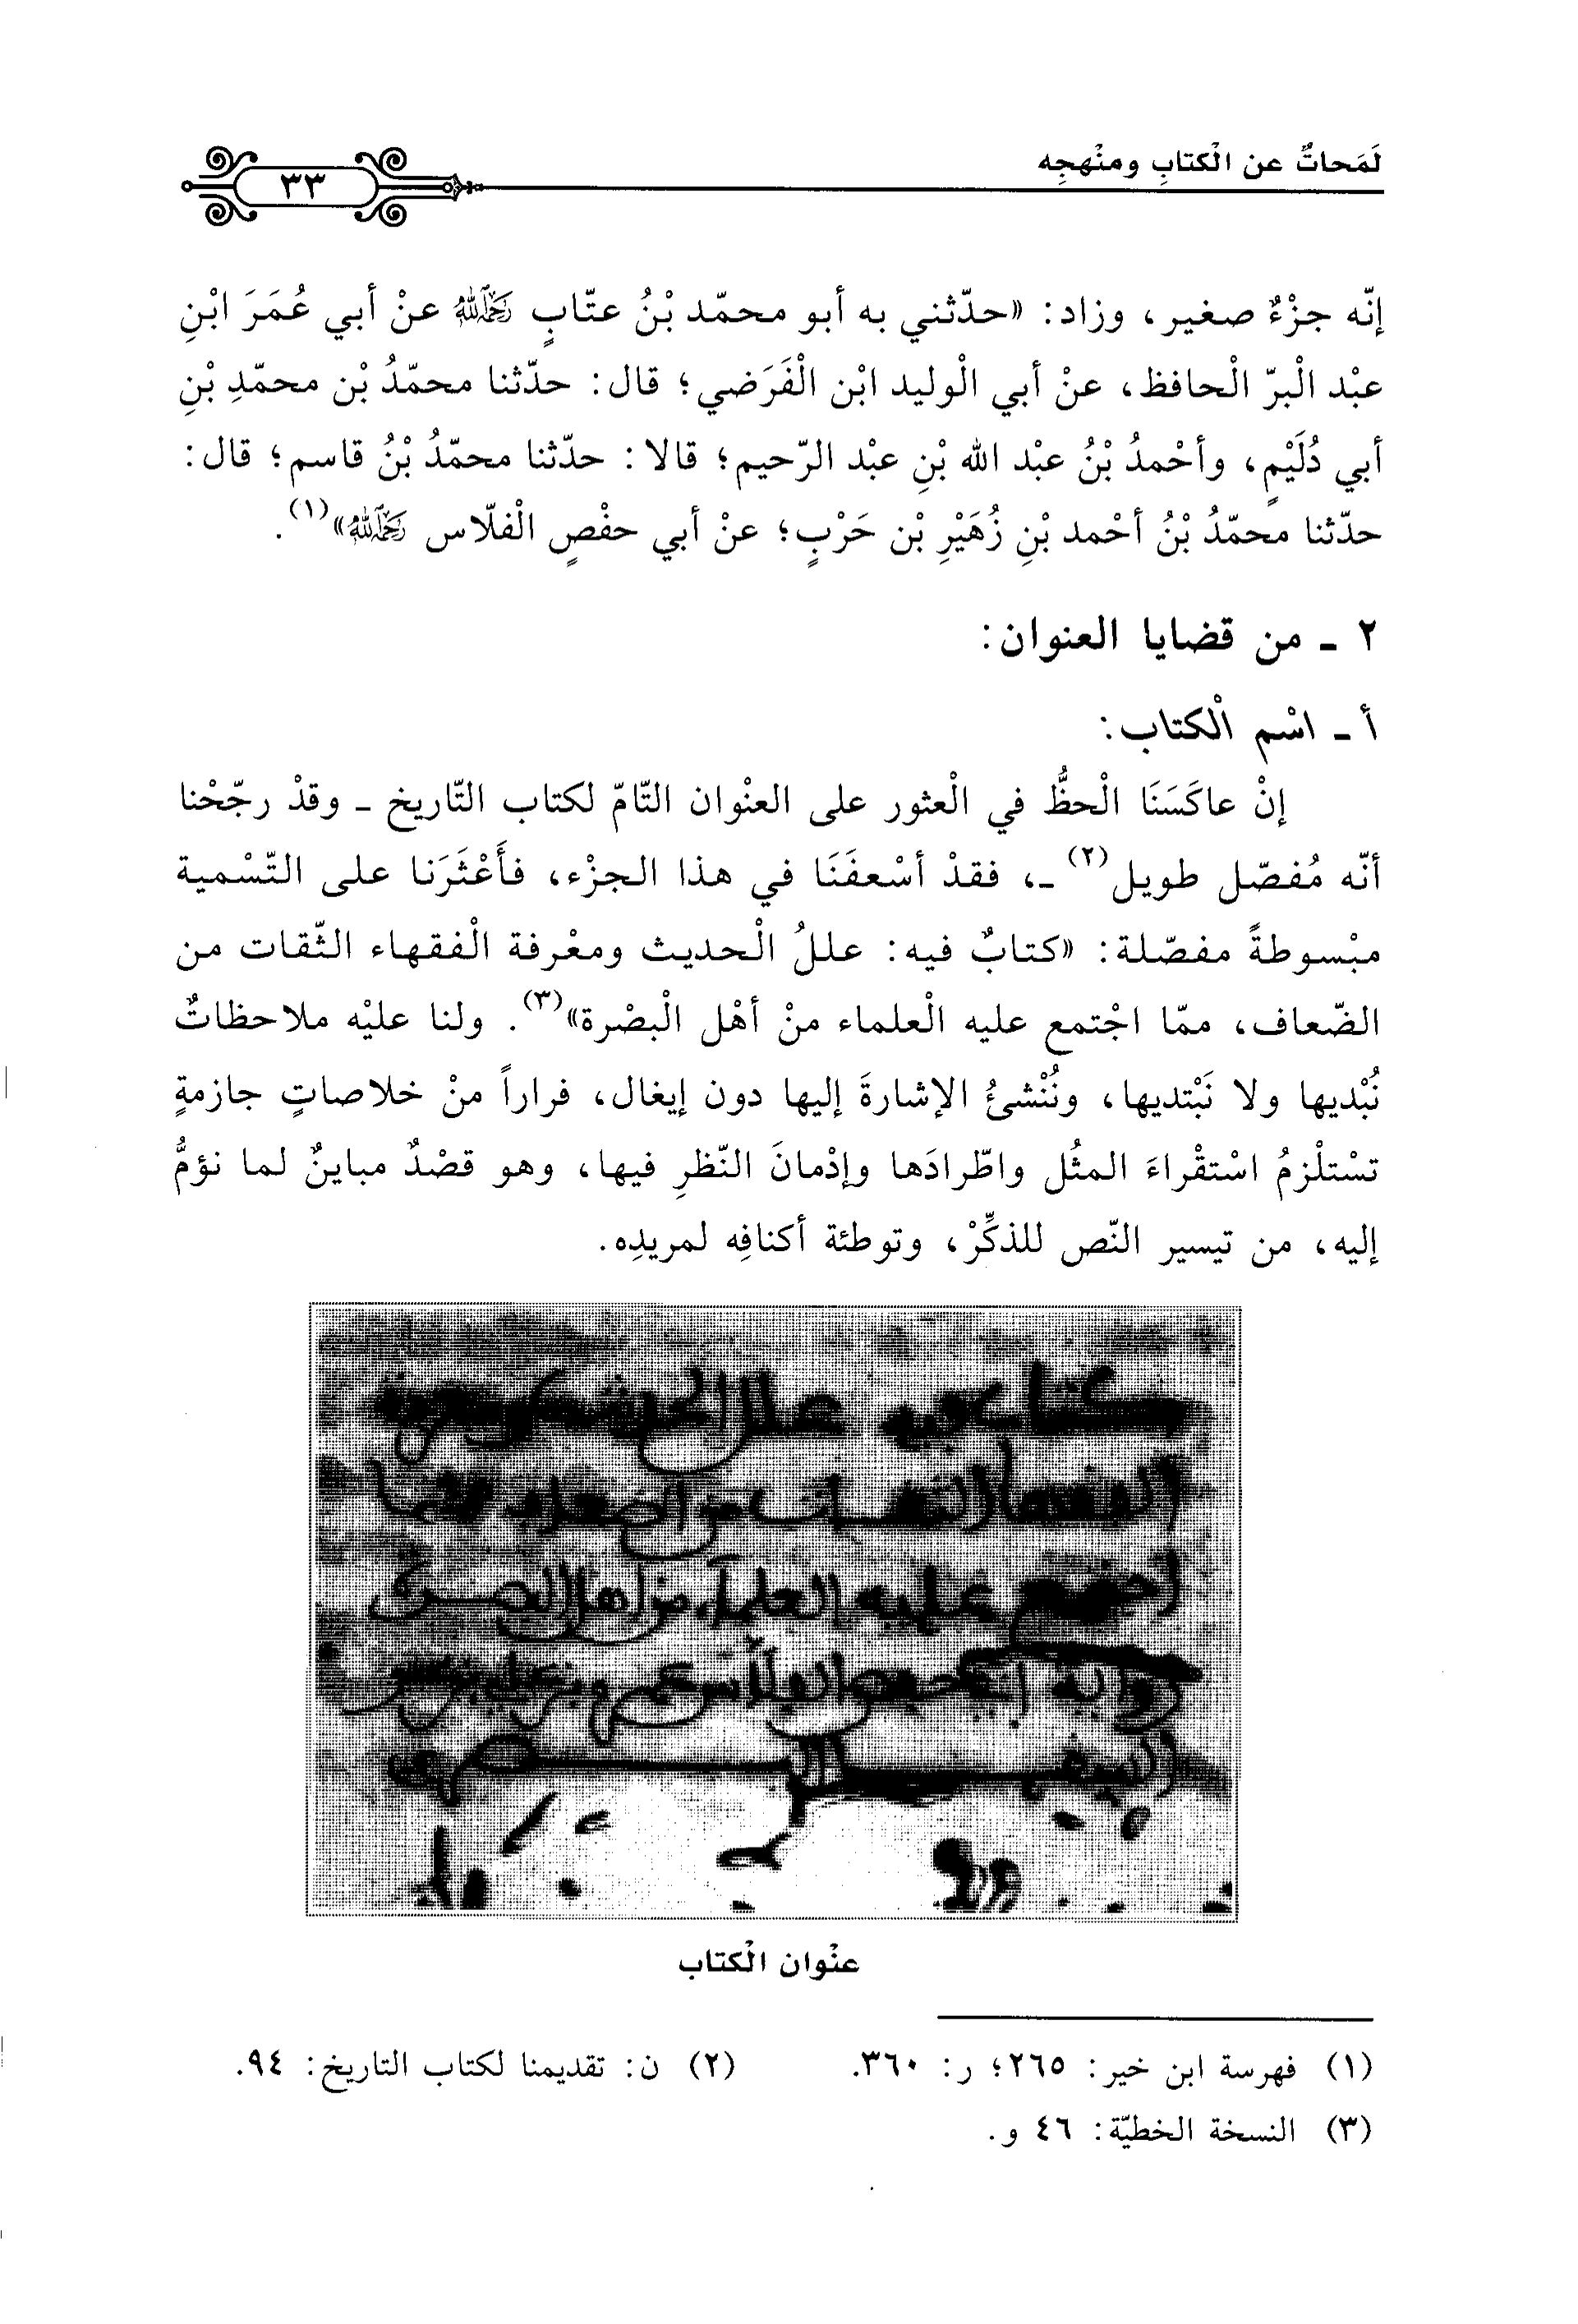 لَمَحاتٌ عن الْكتابِ ومنْهجِه
٣٣
إنّه جزْءٌ صغير، وزاد: «حدّثني به أبو محمّد بْنُ عتّابٍ رَحِمَهُ اللهُ عنْ أبي عُمَرَ ابْنِ
عبْد الْبرّ الْحافظ، عنْ أبي الْوليد ابْن الْفَرَضي؛ قال: حدّثنا محمّدُ بْن محمّدِ بْنِ
أبي دُلَيْمٍ، وأحْمدُ بْنُ عبْد الله بْنِ عبْد الرّحيم؛ قالا: حدّثنا محمّدُ بْنُ قاسم؛ قال:
حدّثنا محمّدُ بْنُ أحْمد بْنِ زُهَيْرِ بْن حَرْبٍ؛ عنْ أبي حفْصٍ الْفلّاس رَحِمَهُ اللهُ»(١).
٢ ـ من قضايا العنوان:
أ ـ اسْم الْكتاب:
إنْ عاكَسَنَا الْحظُّ في الْعثور على العنْوان التّامّ لكتاب التّاريخ ـ وقدْ رجّحْنا
أنّه مُفصّل طويل(٢) ـ، فقدْ أسْعفَنَا في هذا الجزْء، فأَعْثَرَنا على التّسْمية
مبْسوطةً مفصّلة: «كتابٌ فيه: عللُ الْحديث ومعْرفة الْفقهاء الثّقات من
الضّعاف، ممّا اجْتمع عليه الْعلماء منْ أهْل الْبصْرة»(٣). ولنا عليْه ملاحظاتٌ
نُبْديها ولا نَبْتديها، ونُنْشئُ الإشارةَ إليها دون إيغال، فراراً منْ خلاصاتٍ جازمةٍ
تسْتلْزمُ اسْتقْراءَ المثُل واطّرادَها وإدْمانَ النّظرِ فيها، وهو قصْدٌ مباينٌ لما نؤمُّ
إليه، من تيسير النّص للذكِّرْ، وتوطئة أكنافِه لمريدِه.
كتاب فيه علل الحديث ومعرفة
الفقهاء الثقات من الضعاف مما
اجتمع عليه العلماء من اهل البصرة
رواية ابي حفص الفلاس عمرو بن علي بن بحر
عنْوان الْكتاب
(١) فهرسة ابن خير: ٢٦٥؛ ر: ٣٦٠.
(٢) ن: تقديمنا لكتاب التاريخ: ٩٤.
(٣) النسخة الخطيّة: ٤٦ و.